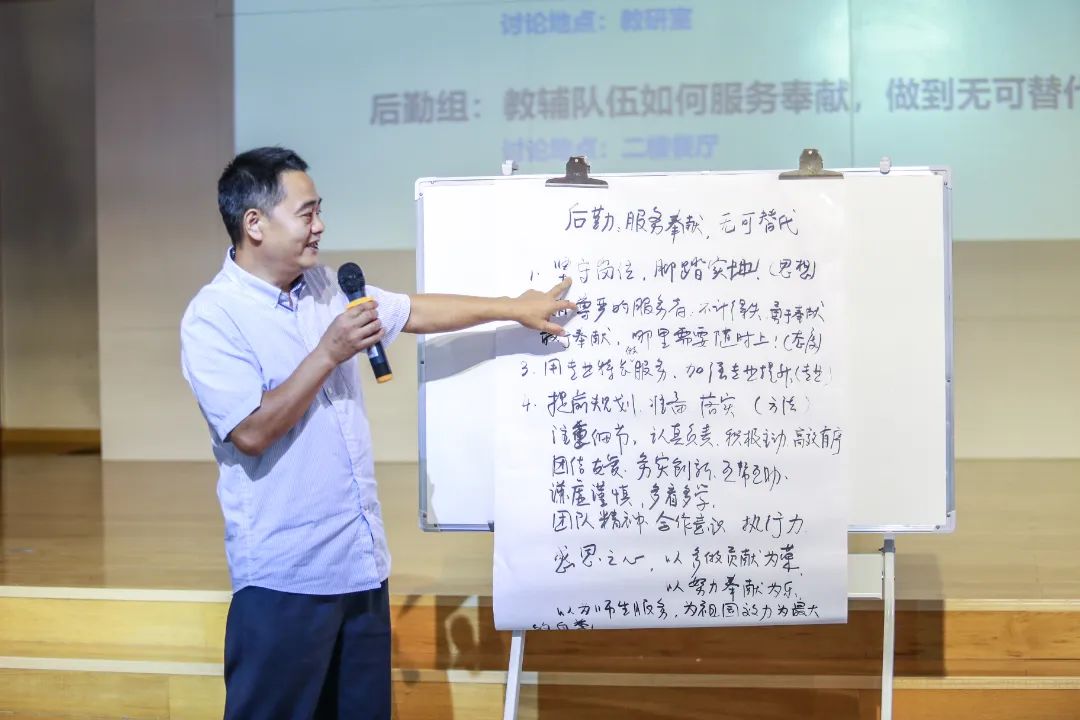 讨论地点：教研室
后勤组：教辅队伍如何服务奉献，做到无可替代
讨论地点：二楼餐厅
后勤：服务奉献，无可替代
1. 坚守岗位，脚踏实地！（思想）
尊严的服务者，不计得失，勇于奉献
敢于奉献，哪里需要随时上！（态度）
做
3. 用专业特长服务，加强专业提升（专业）
4. 提前规划 准备 落实（方法）
注重细节，认真负责、积极主动 高效有序
团结友爱、务实创新、互帮互助、
谦虚谨慎，多看多学，
团队精神 合作意识 执行力
感恩之心，以多做贡献为荣，
以努力奉献为乐，
以为师生服务，为祖国效力为最大
的自豪